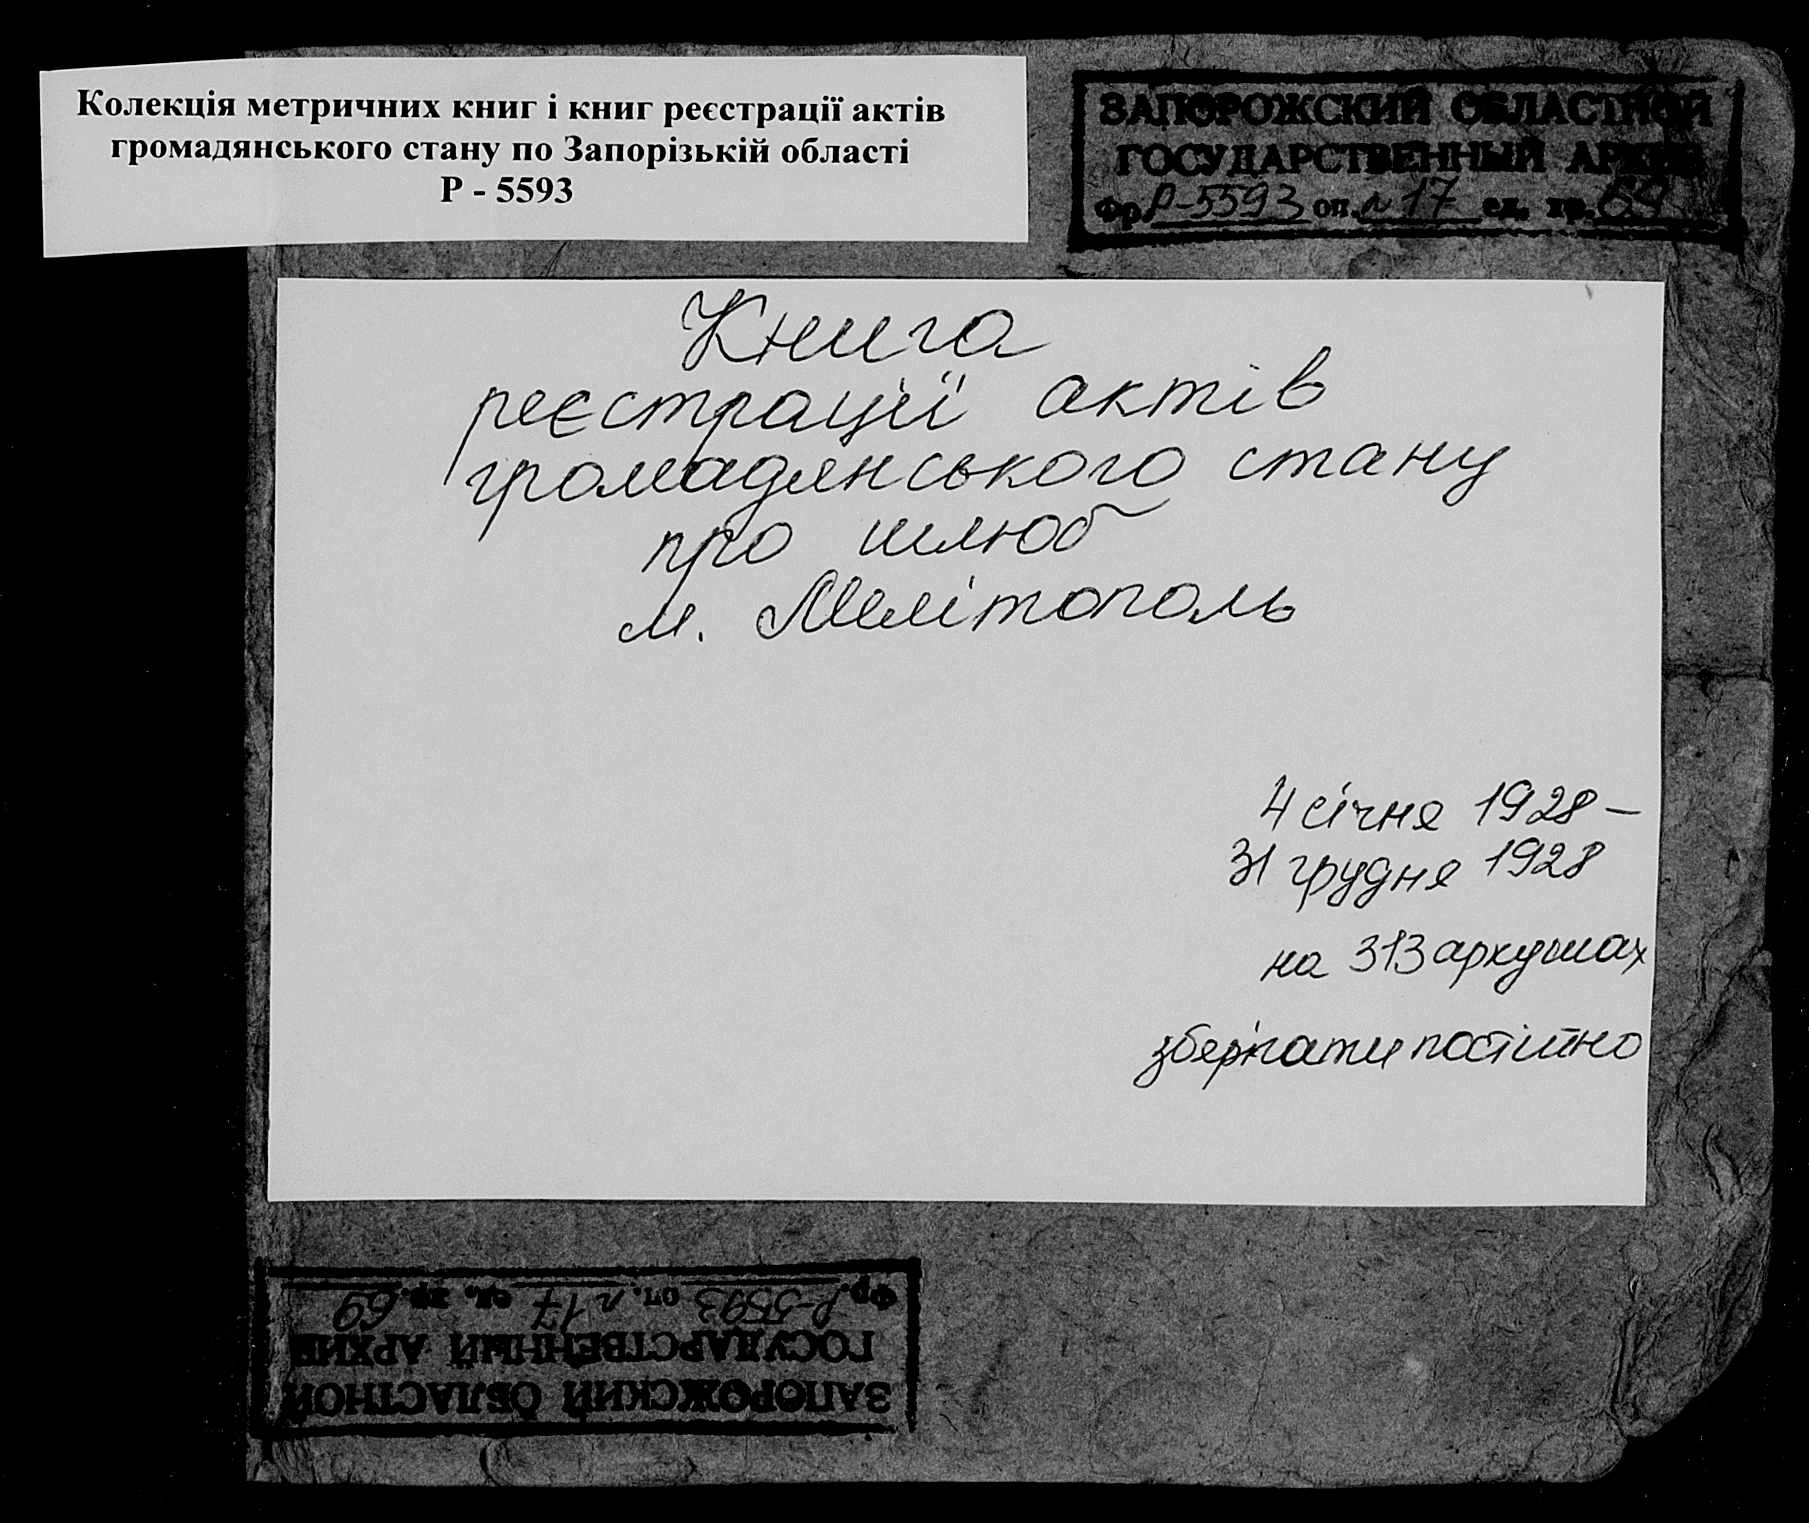 Колекція метричних книг і книг реєстрації актів
громадянського стану по Запорізькій області
Р - 5593
ЗАПОРОЖСКИЙ ОБЛАСТНОЙ
ГОСУДАРСТВЕННЫЙ АРХИВ
Фр. Р-5593 оп. л 17 ед. хр. 69
Книга
реєстрації актів
громадянського стану
про шлюб
м. Мелітополь
4 січня 1928 –
31 грудня 1928
на 313 аркушах
зберігати постійно
ЗАПОРОЖСКИЙ ОБЛАСТНОЙ
ГОСУДАРСТВЕННЫЙ АРХИВ
Фр. Р-5593 оп. л 17 ед. хр. 69